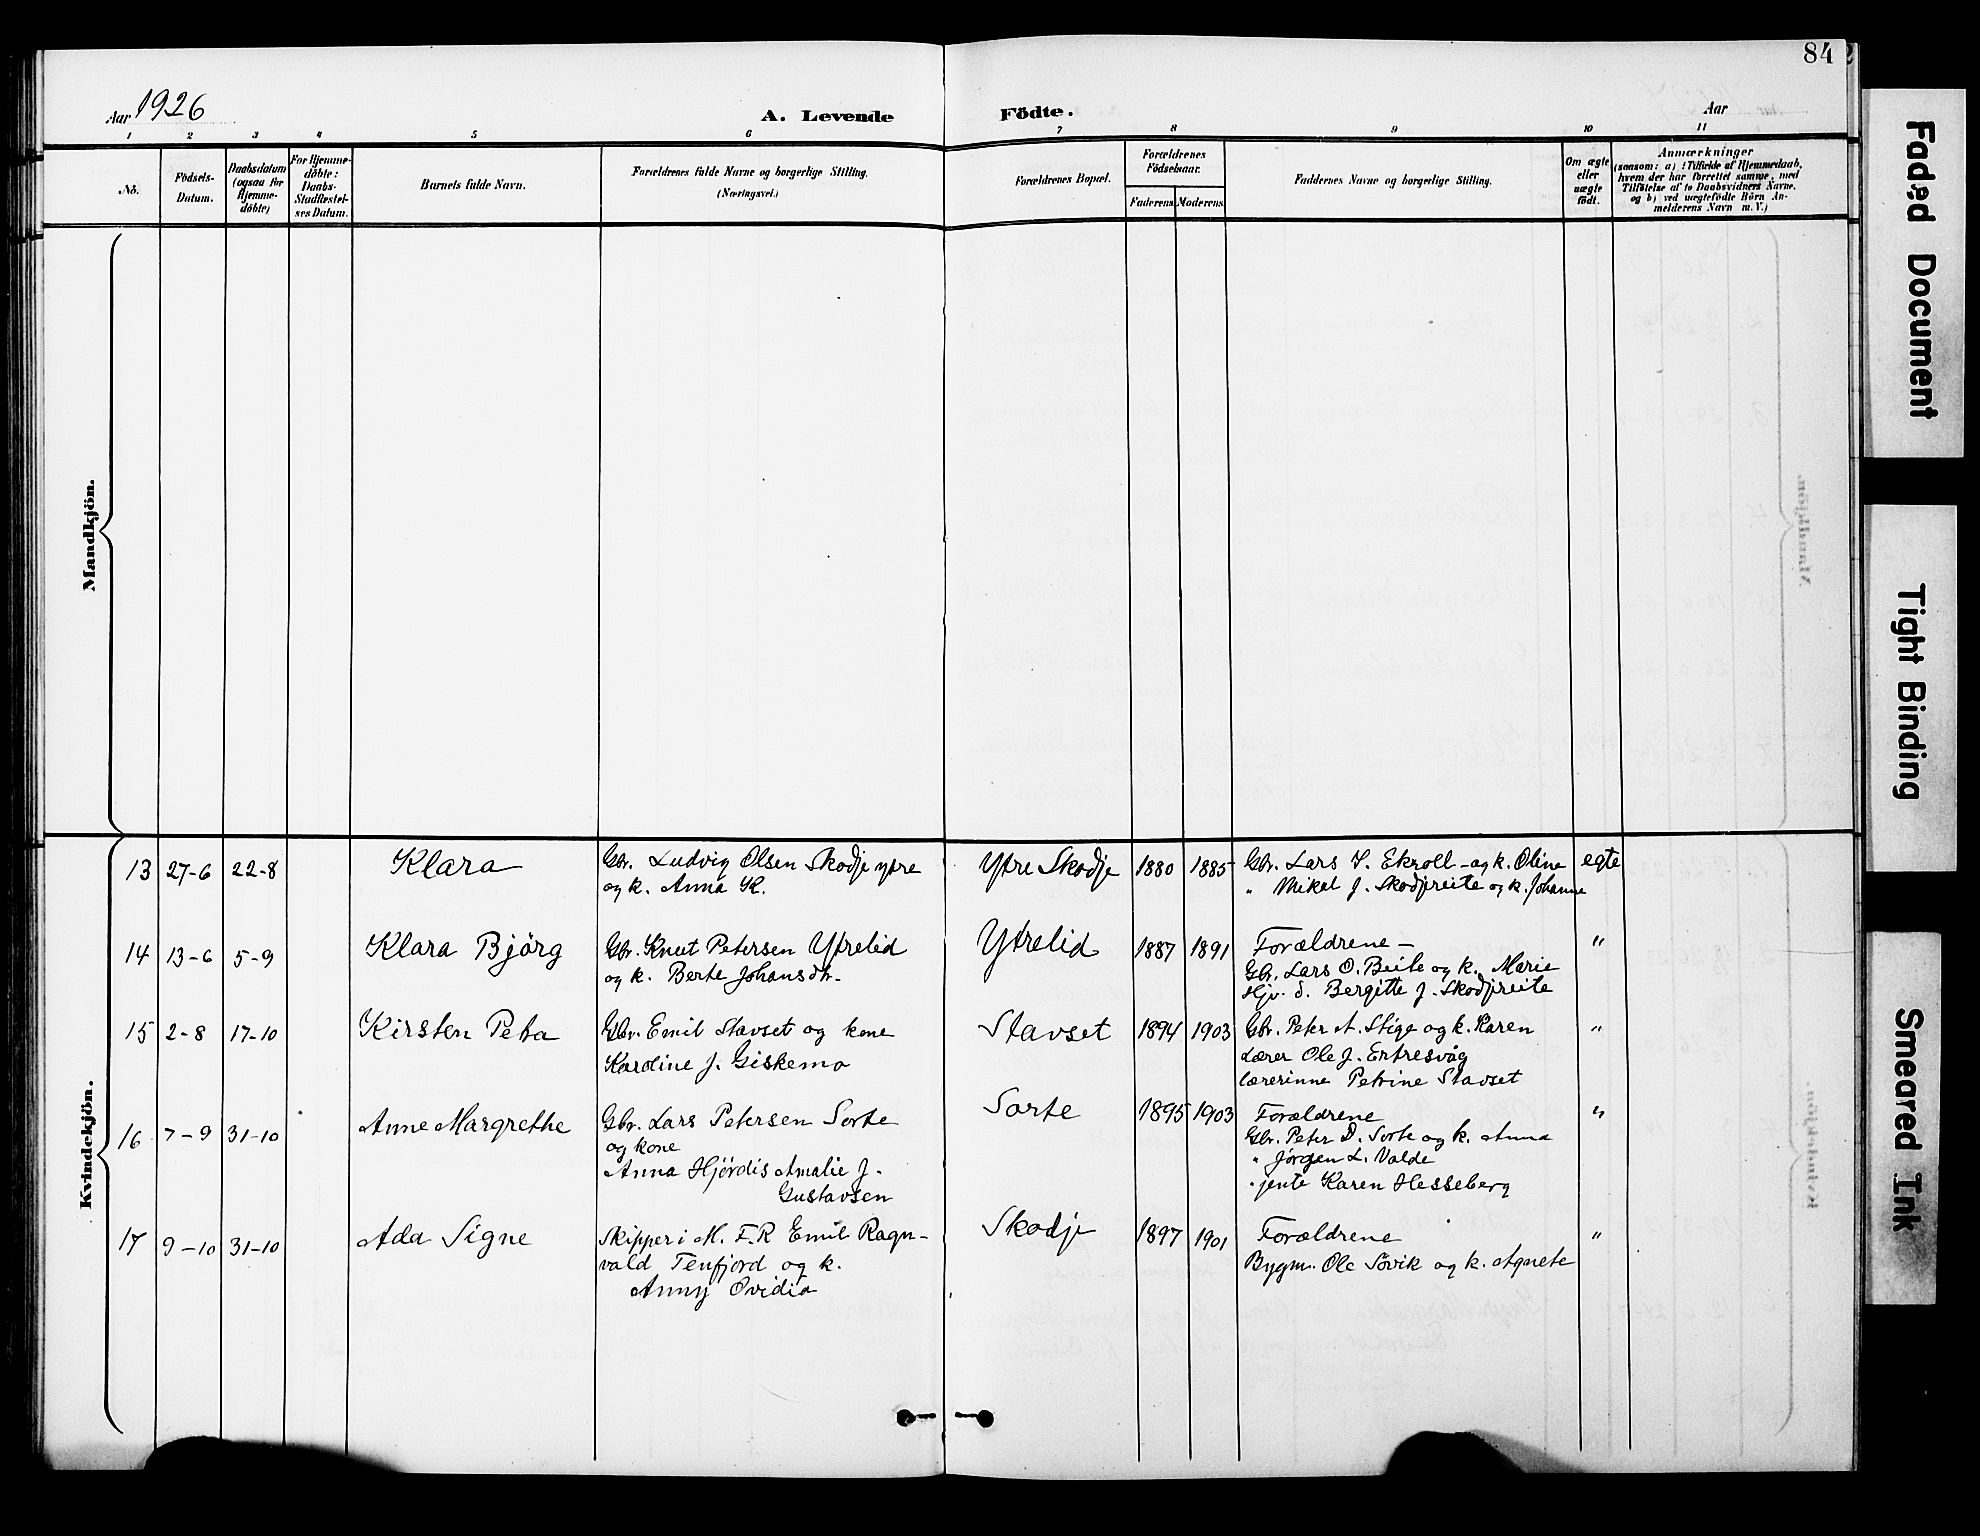 84
Aar 1926
A. Levende Födte.
Aar
1 2 3 4 5 6 7 8 9 10 11
No.
Födsels-
Datum.
Daabsdatum
(ogsaa for
Hjemme-
döbte)
For Hjemme-
döbte:
Daabs-
Stadfæstel-
ses Datum.
Barnets fulde Navn.
Forældrenes fulde Navne og borgerlige Stilling.
(Næringsvei.)
Forældrenes Bopæl.
Forældrenes
Födselsaar.
Faderens Moderens
Faddernes Navne og borgerlige Stilling.
Om ægte
eller
uægte
födt.
Anmærkninger
(saasom: a) i Tilfælde af Hjemmedaab,
hvem der har forrettet samme, med
Tilföielse af to Daabsvidners Navne,
og b) ved uægtefödte Börn An-
melderens Navn m. V.)
Mandkjön.
Kvindekjön.
13 27-6 22-8 Klara
Gbr. Ludvig Olsen Skodje ytre
og k. Anna K.
Ytre Skodje 1880 1885
Gbr. Lars Ekroll - og k. Oline
" Mikal J. Skodjereite og k. Johanne
egte
14 13-6 5-9 Klara Bjørg
Gbr. Knut Petersen Ytrelid
og k. Berte Johansdtr.
Ytrelid 1887 1891
Forældrene -
Gbr. Lars O. Beite og k. Marie
Hjv. d. Bergitte J. Skodjereite
"
15 2-8 17-10 Kirsten Petra
Gbr. Emil Stavset og kone
Karoline J. Giskemo
Stavset 1894 1903
Gbr. Peter A. Stige og k. Karen
Lærer Ole J. Ertresvåg
lærerinne Petrine Stavset
"
16 7-9 31-10 Anne Margrethe
Gbr. Lars Petersen Sorte
og kone
Anna Hjördis Amalie J.
Gustavsen
Sorte 1895 1903
Forældrene
Gbr. Peter D. Sorte og k. Anna
" Jörgen L. Valde
" jente Karen Hesseberg
"
17 9-10 31-10 Ada Signe
Skipper i M. F. R Emil Ragn-
vald Tenfjord og k.
Anny Ovidia
Skodje 1897 1901
Forældrene
Bygm. Ole Søvik og k. Agnete
"
Faded Document
Tight Binding
Smeared Ink